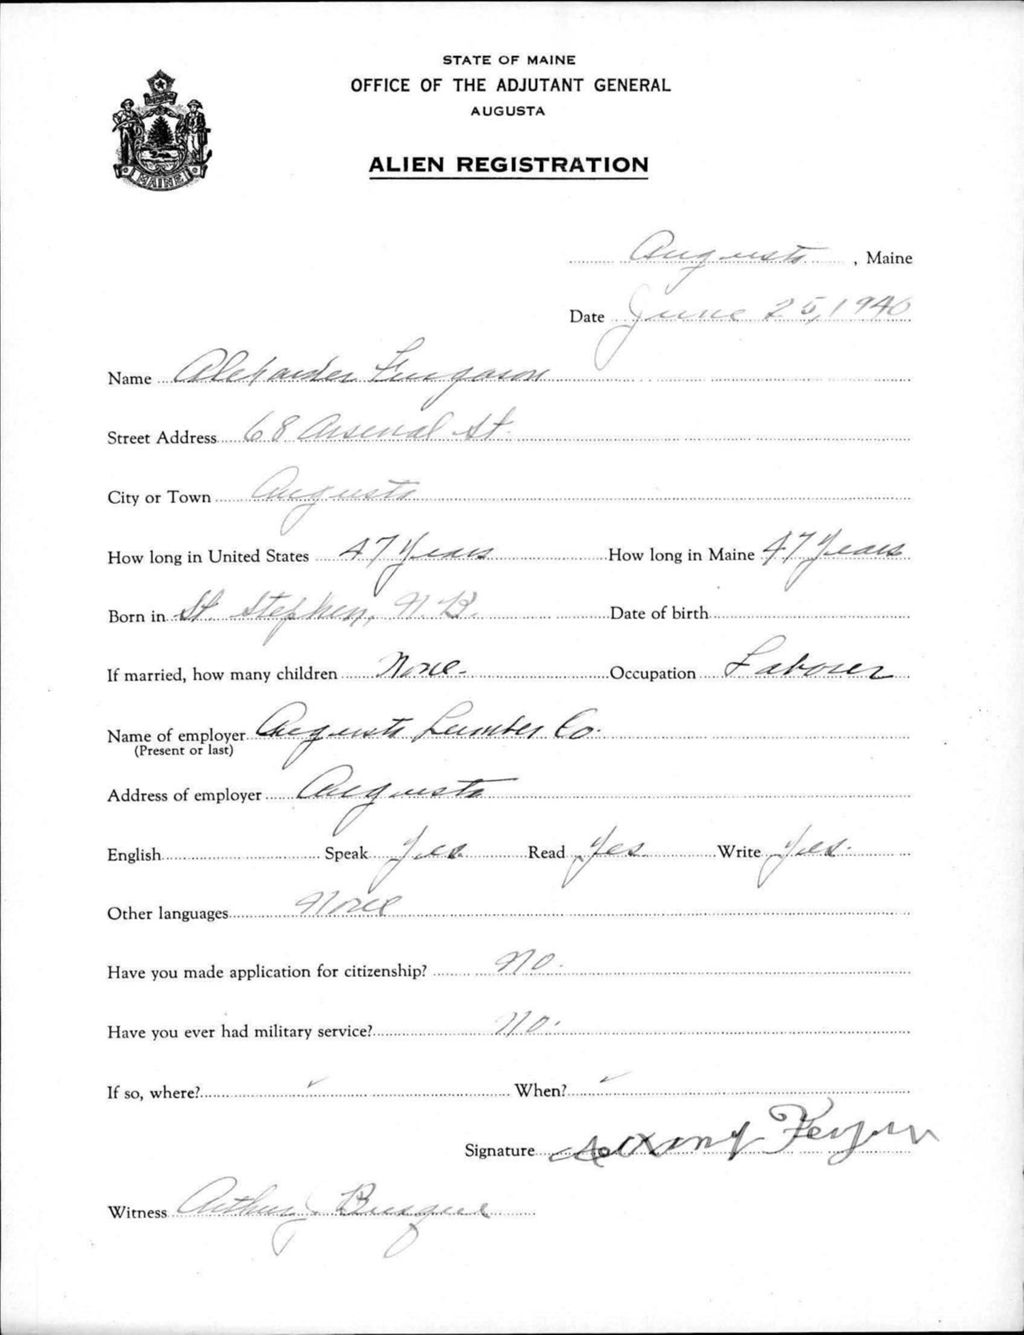 STATE OF MAINE
OFFICE OF THE ADJUTANT GENERAL
AUGUSTA
ALIEN REGISTRATION
MAINE
Augusta, Maine
Date June 25, 1940
Name Alexander Furgason
Street Address 68 Arsenal St.
City or Town Augusta
How long in United States 47 Years How long in Maine 47 Years
Born in St. Stephen, N.B. Date of birth
If married, how many children None. Occupation Laborer
Name of employer Augusta Lumber Co.
(Present or last)
Address of employer Augusta
English Speak Yes. Read Yes Write Yes.
Other languages None
Have you made application for citizenship? No.
Have you ever had military service? No.
If so, where? When?
Signature
Witness Arthur J. Busque